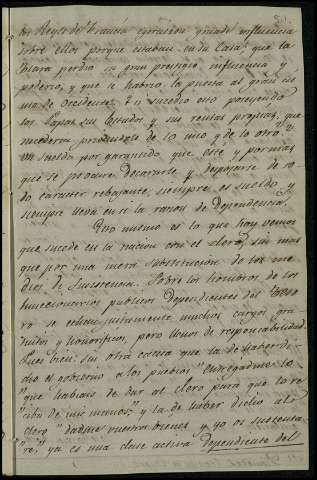 los Reyes de Francia ejercieron grande influencia
sobre ellos porque estaban en su Casa; que la
Tiara perdió su gran prestigio, influencia y
poderio, y que se habrio la puerta al gran cis-
ma de Occidente. Si sucedio eso poseyendo
los Papas sus Estados y sus rentas propias, que
sucederia privandose de lo uno y de lo otro?
Un sueldo por garantido que esté y por mas
que se procure decorarle y despojarse de to-
do caracter rebajante, siempre es sueldo y
siempre lleva en si la razon de dependencia.
Eso mismo es lo que hoy vemos
que sucede en la nacion con el clero, sin mas
que por una mera substitucion de los me-
dios de subsistencia. Sobre los hombros de los
funcionarios publicos dependientes del Teso-
ro se echan justamente muchos cargos gra-
tuitos y honorificos, pero llenos de responsabilidad.
Pues bien: sin otra causa que la de haber di-
cho el gobierno a los pueblos "entregadme lo
que habiais de dar al clero para que lo re-
ciba de mis manos;" y la de haber dicho al
clero "dadme vuestros bienes y yo os sustenta-
re," ya es una clase activa dependiente del